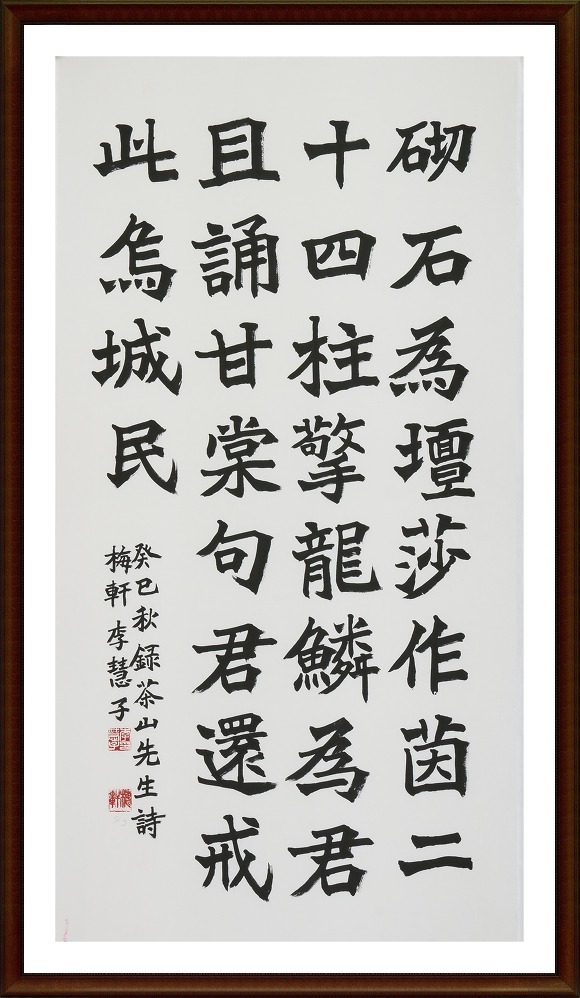 砌石為壇莎作茵二
十四柱擎龍鱗為君
且誦甘棠句君還戒
此烏城民
癸巳秋録茶山先生詩
梅軒李慧子